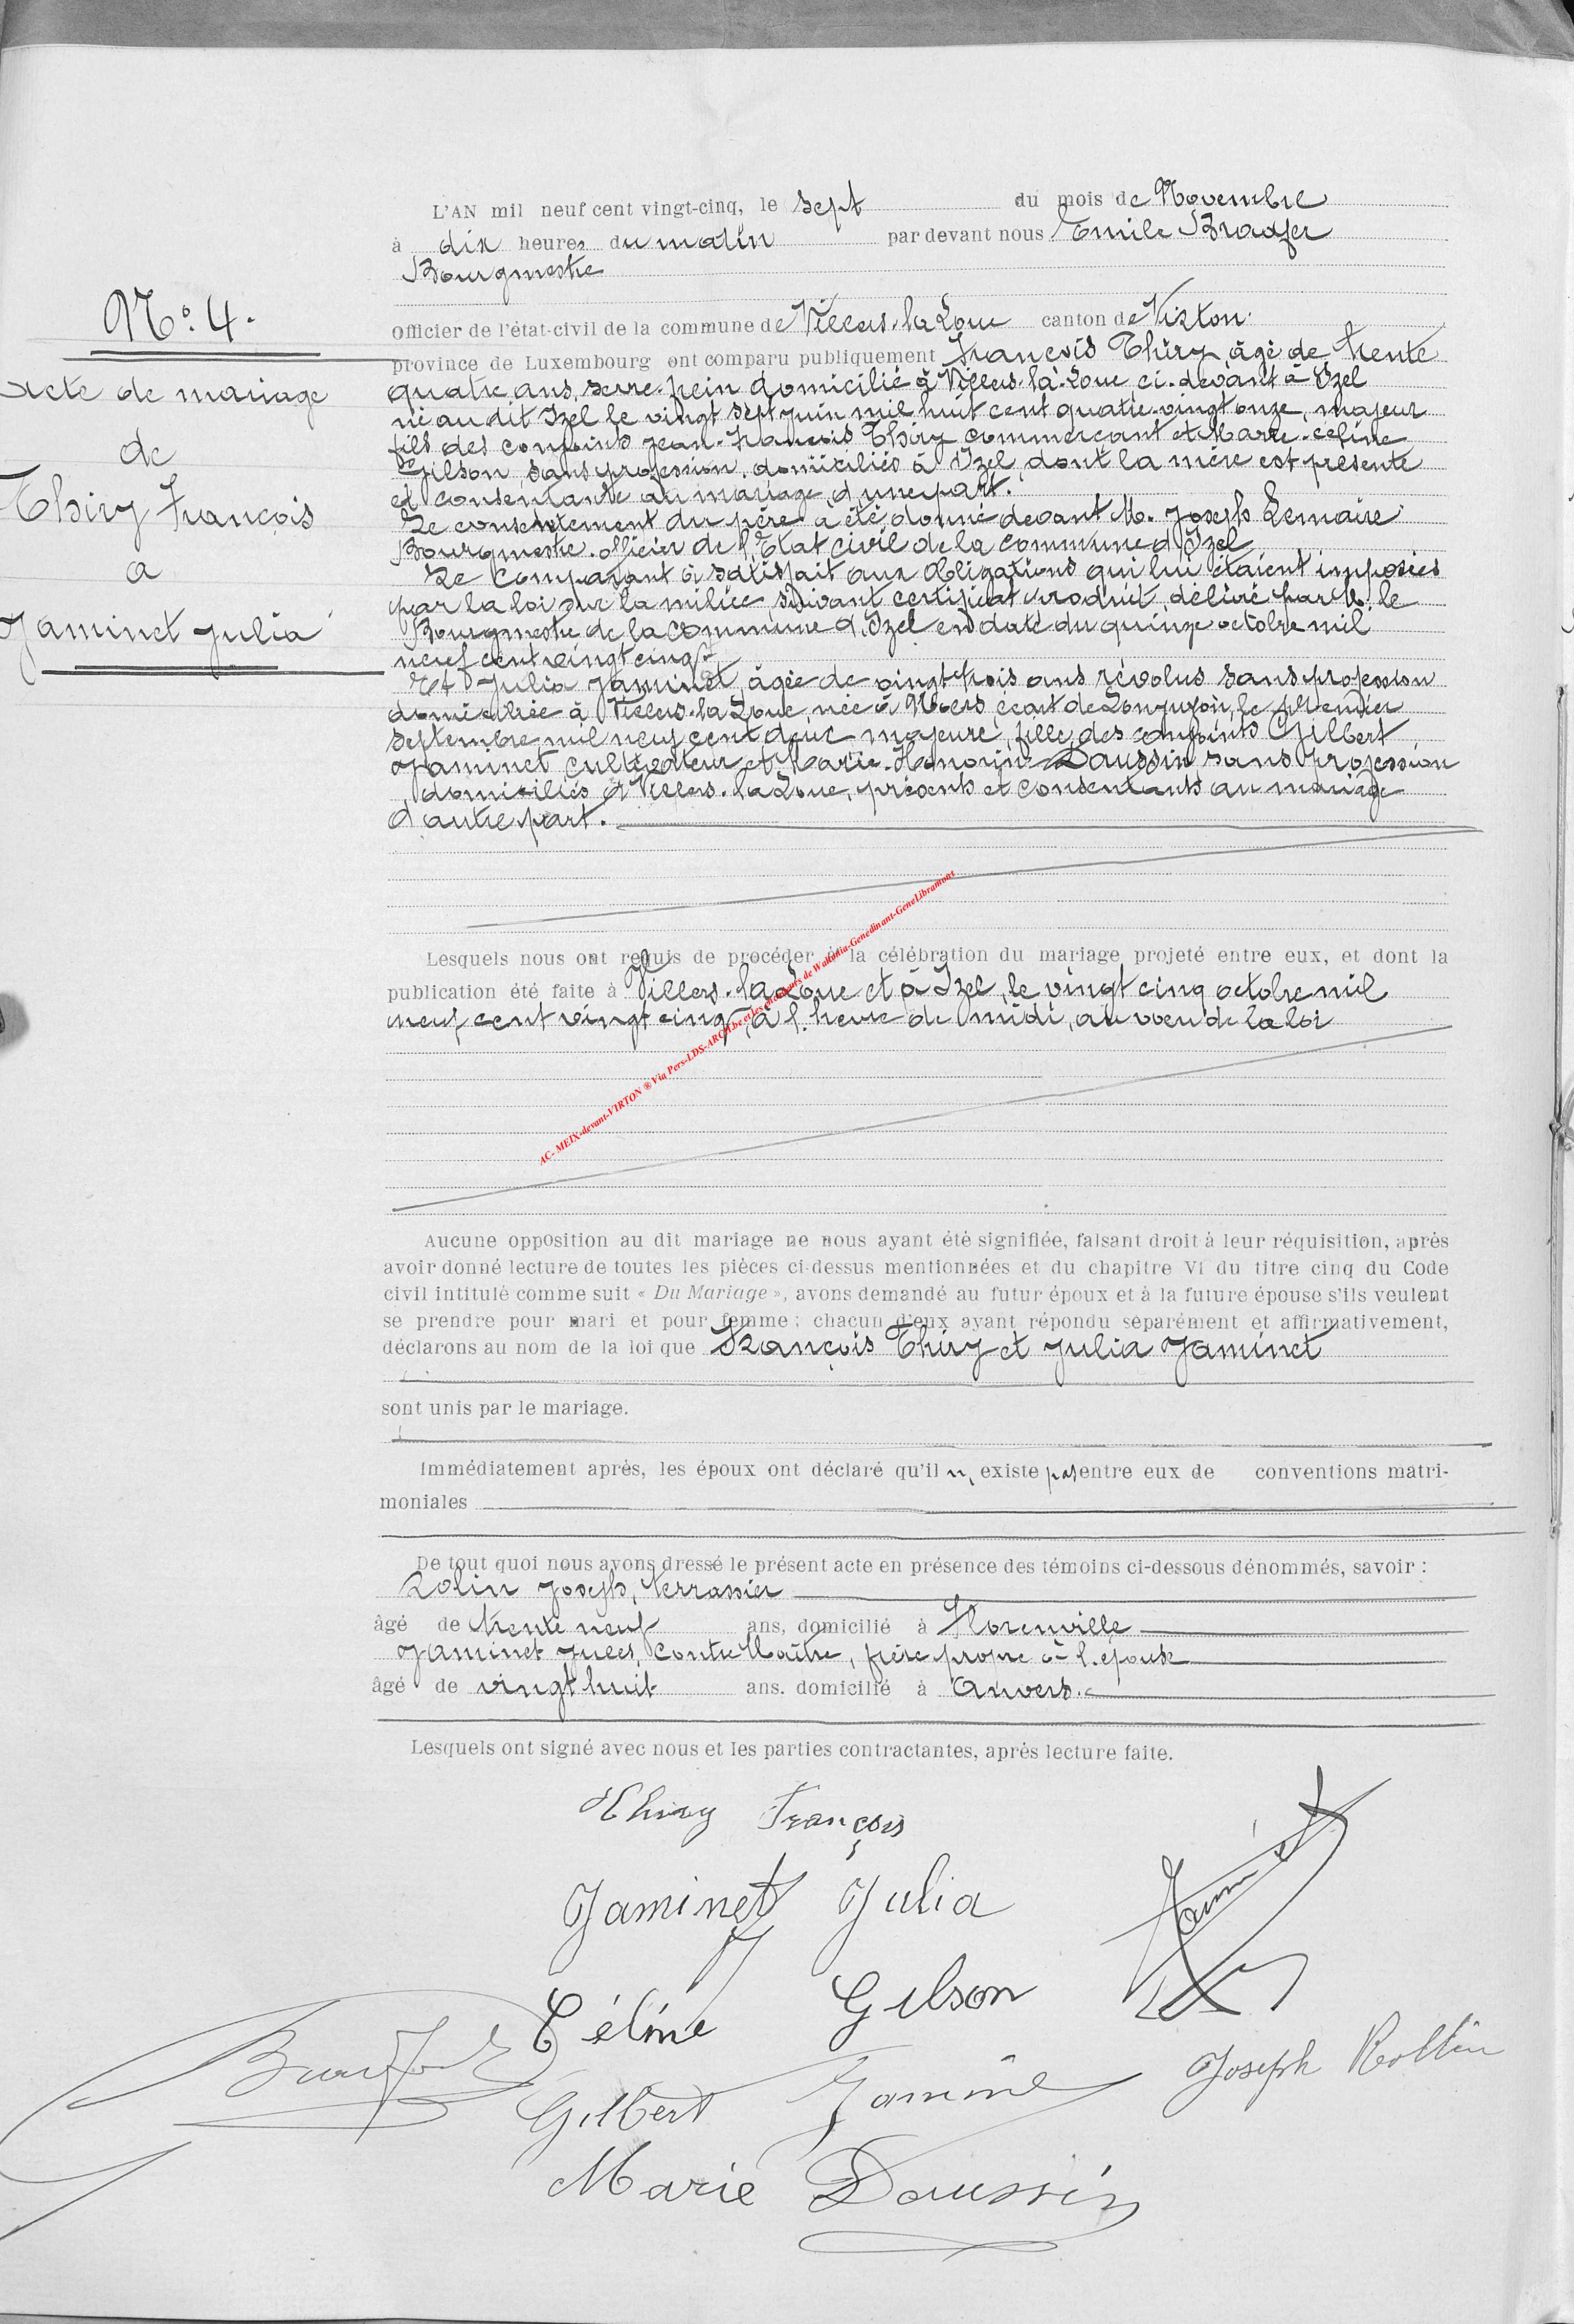 L'AN mil neuf cent vingt-cinq, le sept du mois de Novembre
à dix heures du matin par devant nous Emile Braffer
Bourgmestre
N° 4.
Officier de l'état-civil de la commune de Villers-la-Loue canton de Virton
province de Luxembourg ont comparu publiquement François Thiry, âgé de trente
Acte de mariage
quatre ans, serre-frein domicilié à Villers-la-Loue ci-devant à Izel
né au dit Izel le vingt sept juin mil huit cent quatre-vingt onze, majeur
fils des conjoints Jean-François Thiry commerçant et Marie-Céline
de
Gilson, sans profession, domiciliés à Izel, dont la mère est présente
et consentante au mariage, d'une part.
Thiry François
Le consentement du père a été donné devant M. Joseph Lemaire
Bourgmestre officier de l'Etat civil de la commune d'Izel
a
Le comparant a satisfait aux obligations qui lui étaient imposées
par la loi sur la milice suivant certificat produit, délivré par M. le
Jaminet Julia
Bourgmestre de la commune d'Izel en date du quinze octobre mil
neuf cent vingt cinq
Et Julia Jaminet, âgée de vingt trois ans révolus sans profession
domiciliée à Villers-la-Loue, née à Noers écart de Longuyon, le premier
septembre mil neuf cent deux majeure, fille des conjoints Gilbert
Jaminet, cultivateur et Marie-Honorine Daussin sans profession
domiciliés à Villers-la-Loue, présents et consentants au mariage
d'autre part.
Lesquels nous ont requis de procéder à la célébration du mariage projeté entre eux, et dont la
publication été faite à Villers-la-Loue et à Izel, le vingt cinq octobre mil
neuf cent vingt cinq, à l'heure de midi, au voeu de la loi
AC- MEIX-devant-VIRTON ® Via Pers-LDS-ARCH.be et les encodeurs de Wallonia-Genedinant-GeneLibramont
Aucune opposition au dit mariage ne nous ayant été signifiée, faisant droit à leur réquisition, après
avoir donné lecture de toutes les pièces ci-dessus mentionnées et du chapitre VI du titre cinq du Code
civil intitulé comme suit « Du Mariage », avons demandé au futur époux et à la future épouse s'ils veulent
se prendre pour mari et pour femme ; chacun d'eux ayant répondu séparément et affirmativement,
déclarons au nom de la loi que François Thiry et Julia Jaminet
sont unis par le mariage.
Immédiatement après, les époux ont déclaré qu'il n'existe pas entre eux de conventions matri-
moniales
De tout quoi nous avons dressé le présent acte en présence des témoins ci-dessous dénommés, savoir :
Rolin Joseph, terrassier
âgé de trente neuf ans, domicilié à Florenville
Jaminet Jules, contre Maître, frère propre à l'épouse
âgé de vingt huit ans. domicilié à Anvers.
Lesquels ont signé avec nous et les parties contractantes, après lecture faite.
Thiry François
Jaminet Julia
Jaminet
Céline Gilson
Joseph Rollin
Gilbert Jaminé
Marie Daussin